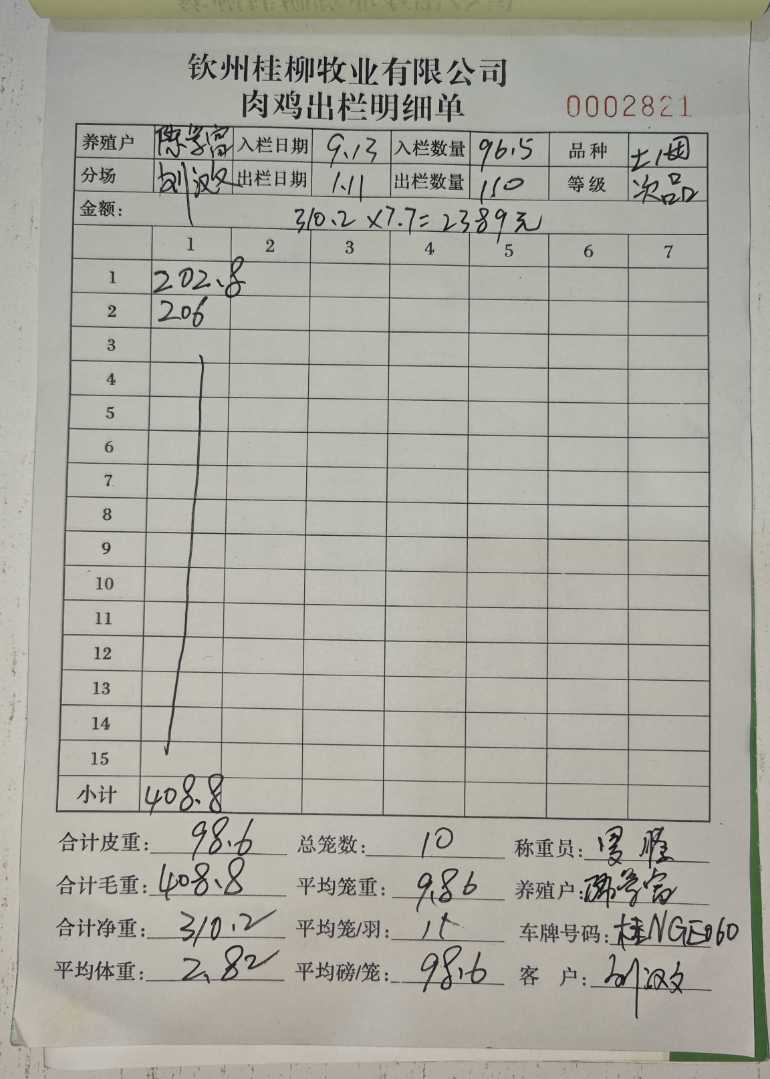 钦州桂柳牧业有限公司
肉鸡出栏明细单 0002821
养殖户 陈学富 入栏日期 9.13 入栏数量 96.5 品种 土1田
分场 刘汉文 出栏日期 1.11 出栏数量 110 等级 次品
金额: 310.2×7.7=2389元
1 2 3 4 5 6 7
1 202.8
2 206
3
4
5
6
7
8
9
10
11
12
13
14
15
小计 408.8
合计皮重: 98.6 总笼数: 10 称重员:
合计毛重: 408.8 平均笼重: 9.86 养殖户: 陈学富
合计净重: 310.2 平均笼/羽: 11 车牌号码: 桂NGE060
平均体重: 2.82 平均磅/笼: 98.6 客户: 刘汉文